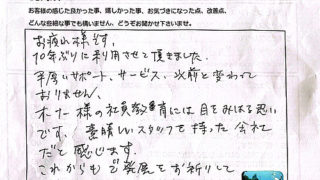 お客様の感じた良かった事、嬉しかった事、お気づきになった点、改善点、
どんな些細な事でも構いません、どうぞお聞かせ下さいませ。
お疲れ様です。
10年ぶりに利用させて頂きました。
手厚いサポート、サービス、以前と変わって
おりません。
オーナー様の社員教育には目をみはる思い
です。素晴しいスタッフを持った会社
だと感じます。
これからもご発展をお祈りして